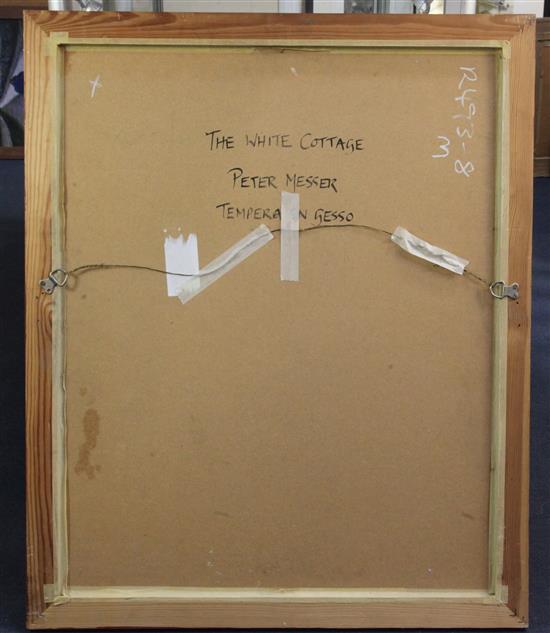 THE WHITE COTTAGE
PETER MESSER
TEMPERA ON GESSO
R493-8
M